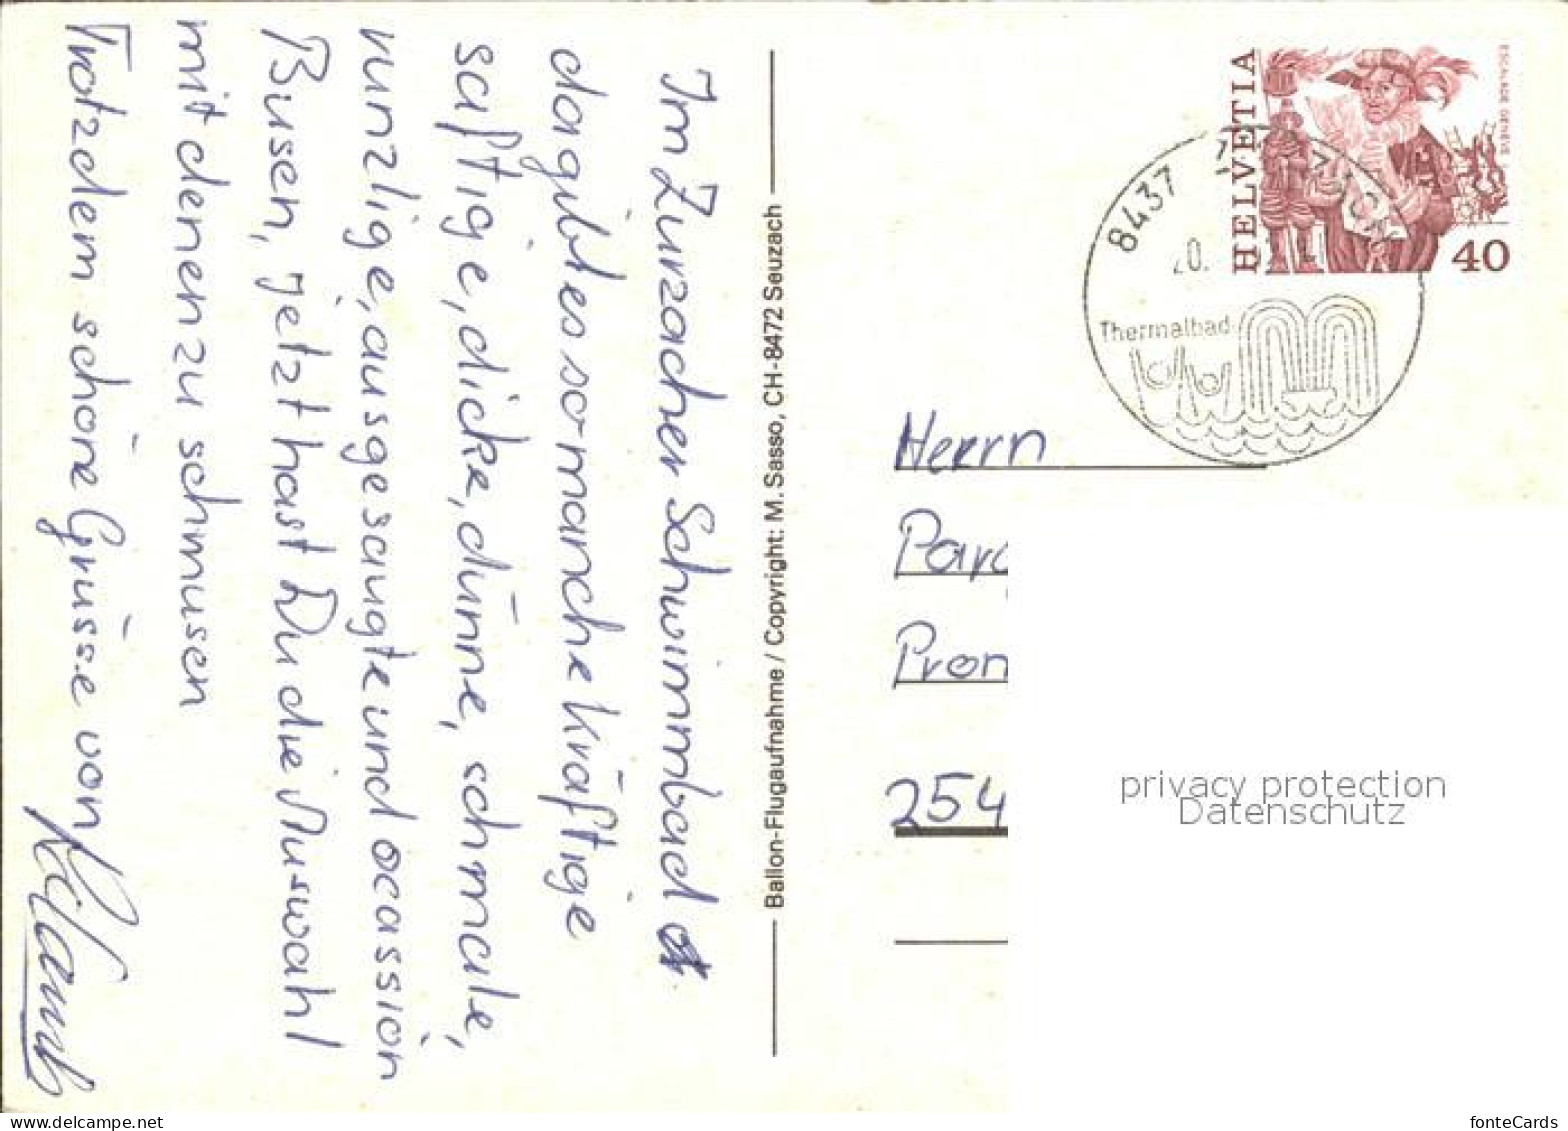 Im Zurzacher Schwimmbad
da gibt es so manche kräftige
saftige, dicke, dünne, schmale,
runzlige, ausgesaugte und ocassion
Busen, jetzt hast Du die Auswahl
mit denen zu schmusen
Trotzdem schöne Grüsse von
Ballon-Flugaufnahme / Copyright: M. Sasso, CH-8472 Seuzach
HELVETIA
ESCALADE GENÈVE
40
8437
Thermalbad
Herrn
Para
Pron
254
privacy protection
Datenschutz
fonteCards